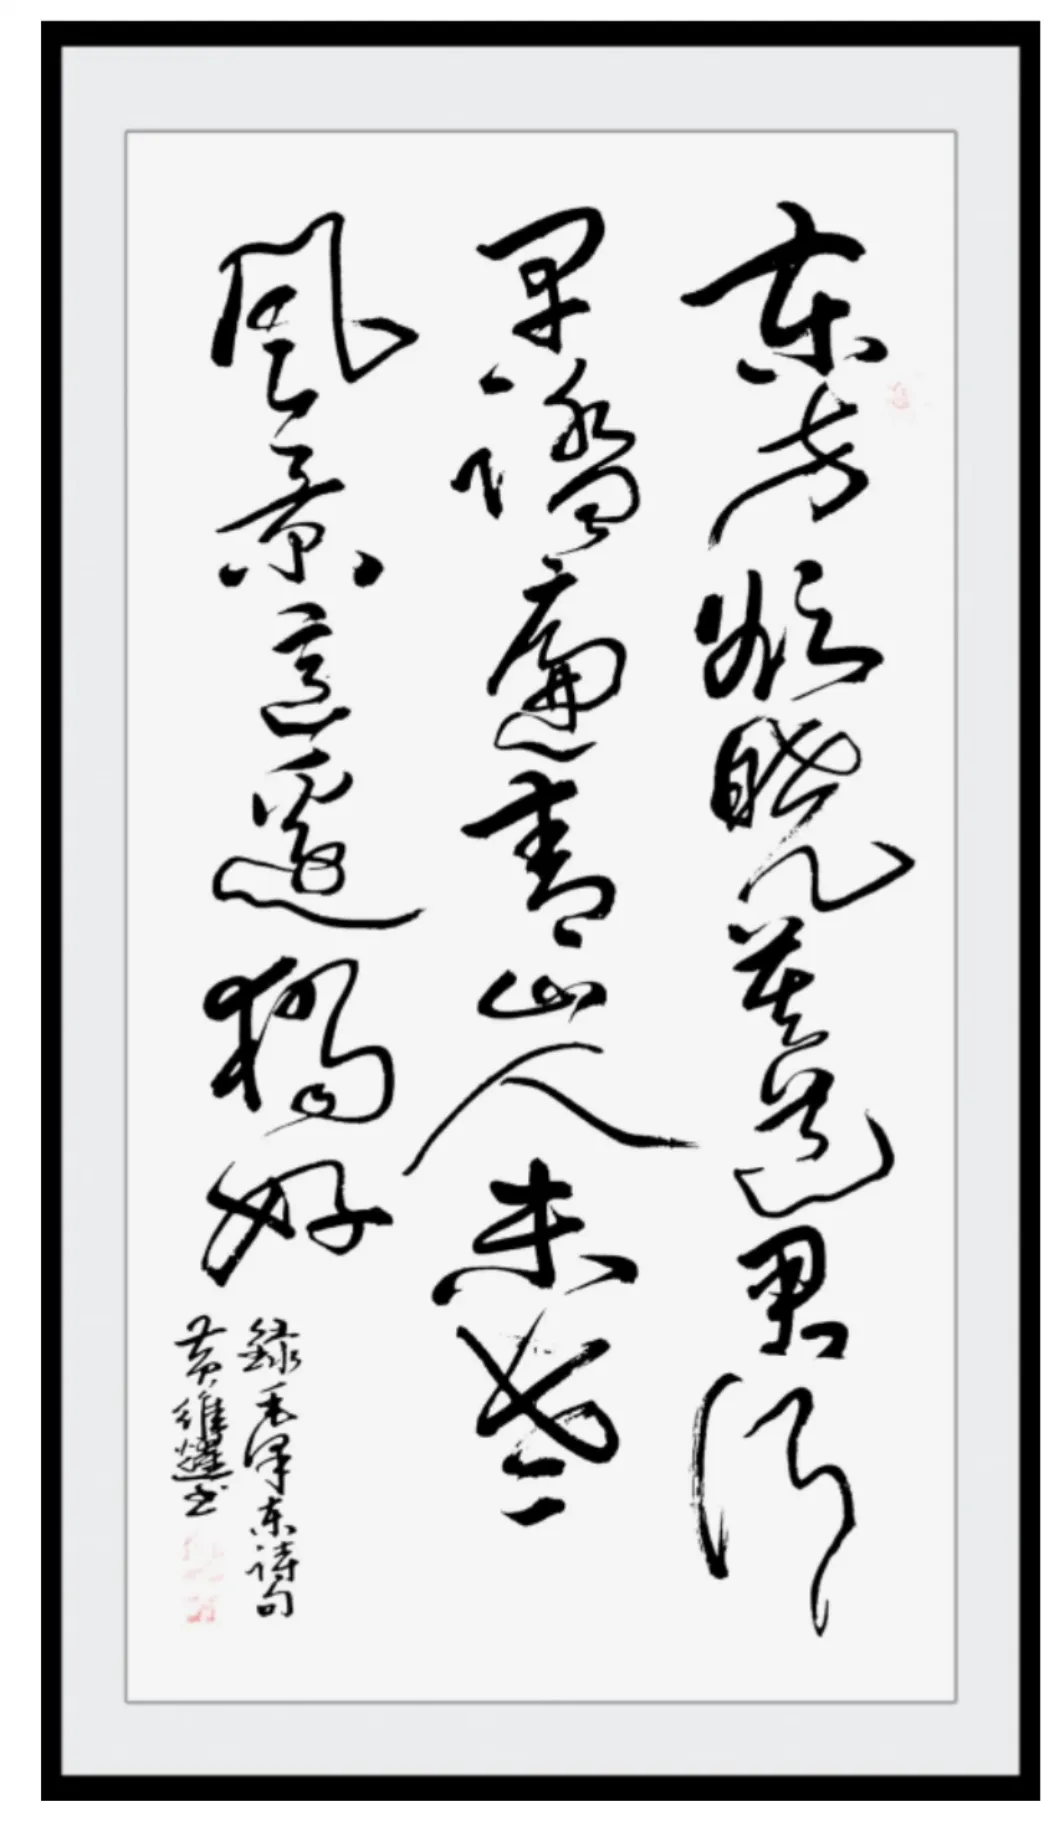 东方欲晓莫道君行
早踏遍青山人未老
风景這邊獨好
録毛泽东诗句
黄維书